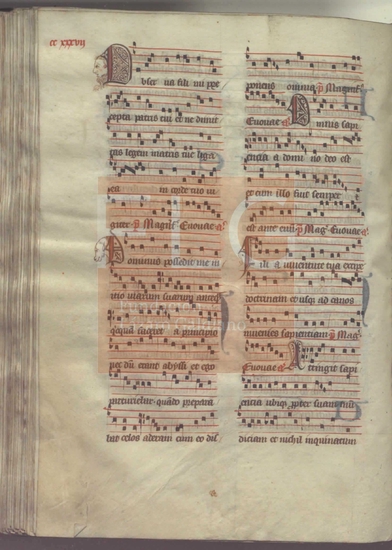 cc xxxvii
serva fili mi pre
cepta patris tui et ne dimit
tas legem matris tue liga
ea in corde tuo iu
giter ps Magnificat Euouae a
Dominus possedit me in
initio viarum suarum anteq
quam faceret a principio
nec dū erant abyssi et ego
parturiebar quādo preparā
bat celos aderam cum eo dis
ponens omnia ps Magnificat
Euouae a Omnis sapi
encia a domino deo est
et cum illo fuit semper
et est ante evū ps Mag Euouae a
Fili a iuventute tua excipe
doctrinam et usq ad canos
invenies sapientiam ps Mag
Euouae a Attingit sapi
encia ubiq propter suam mū
diciam et nichil inquinatum